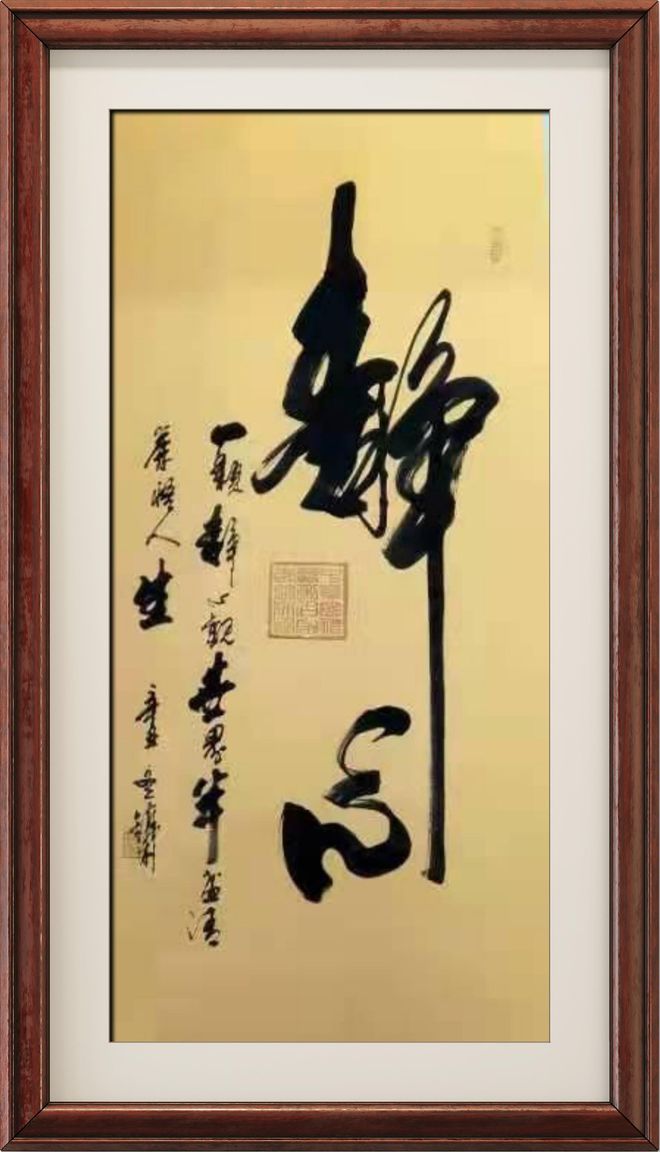 静心
一颗静心观世界半盏清
茶悟人生 辛丑